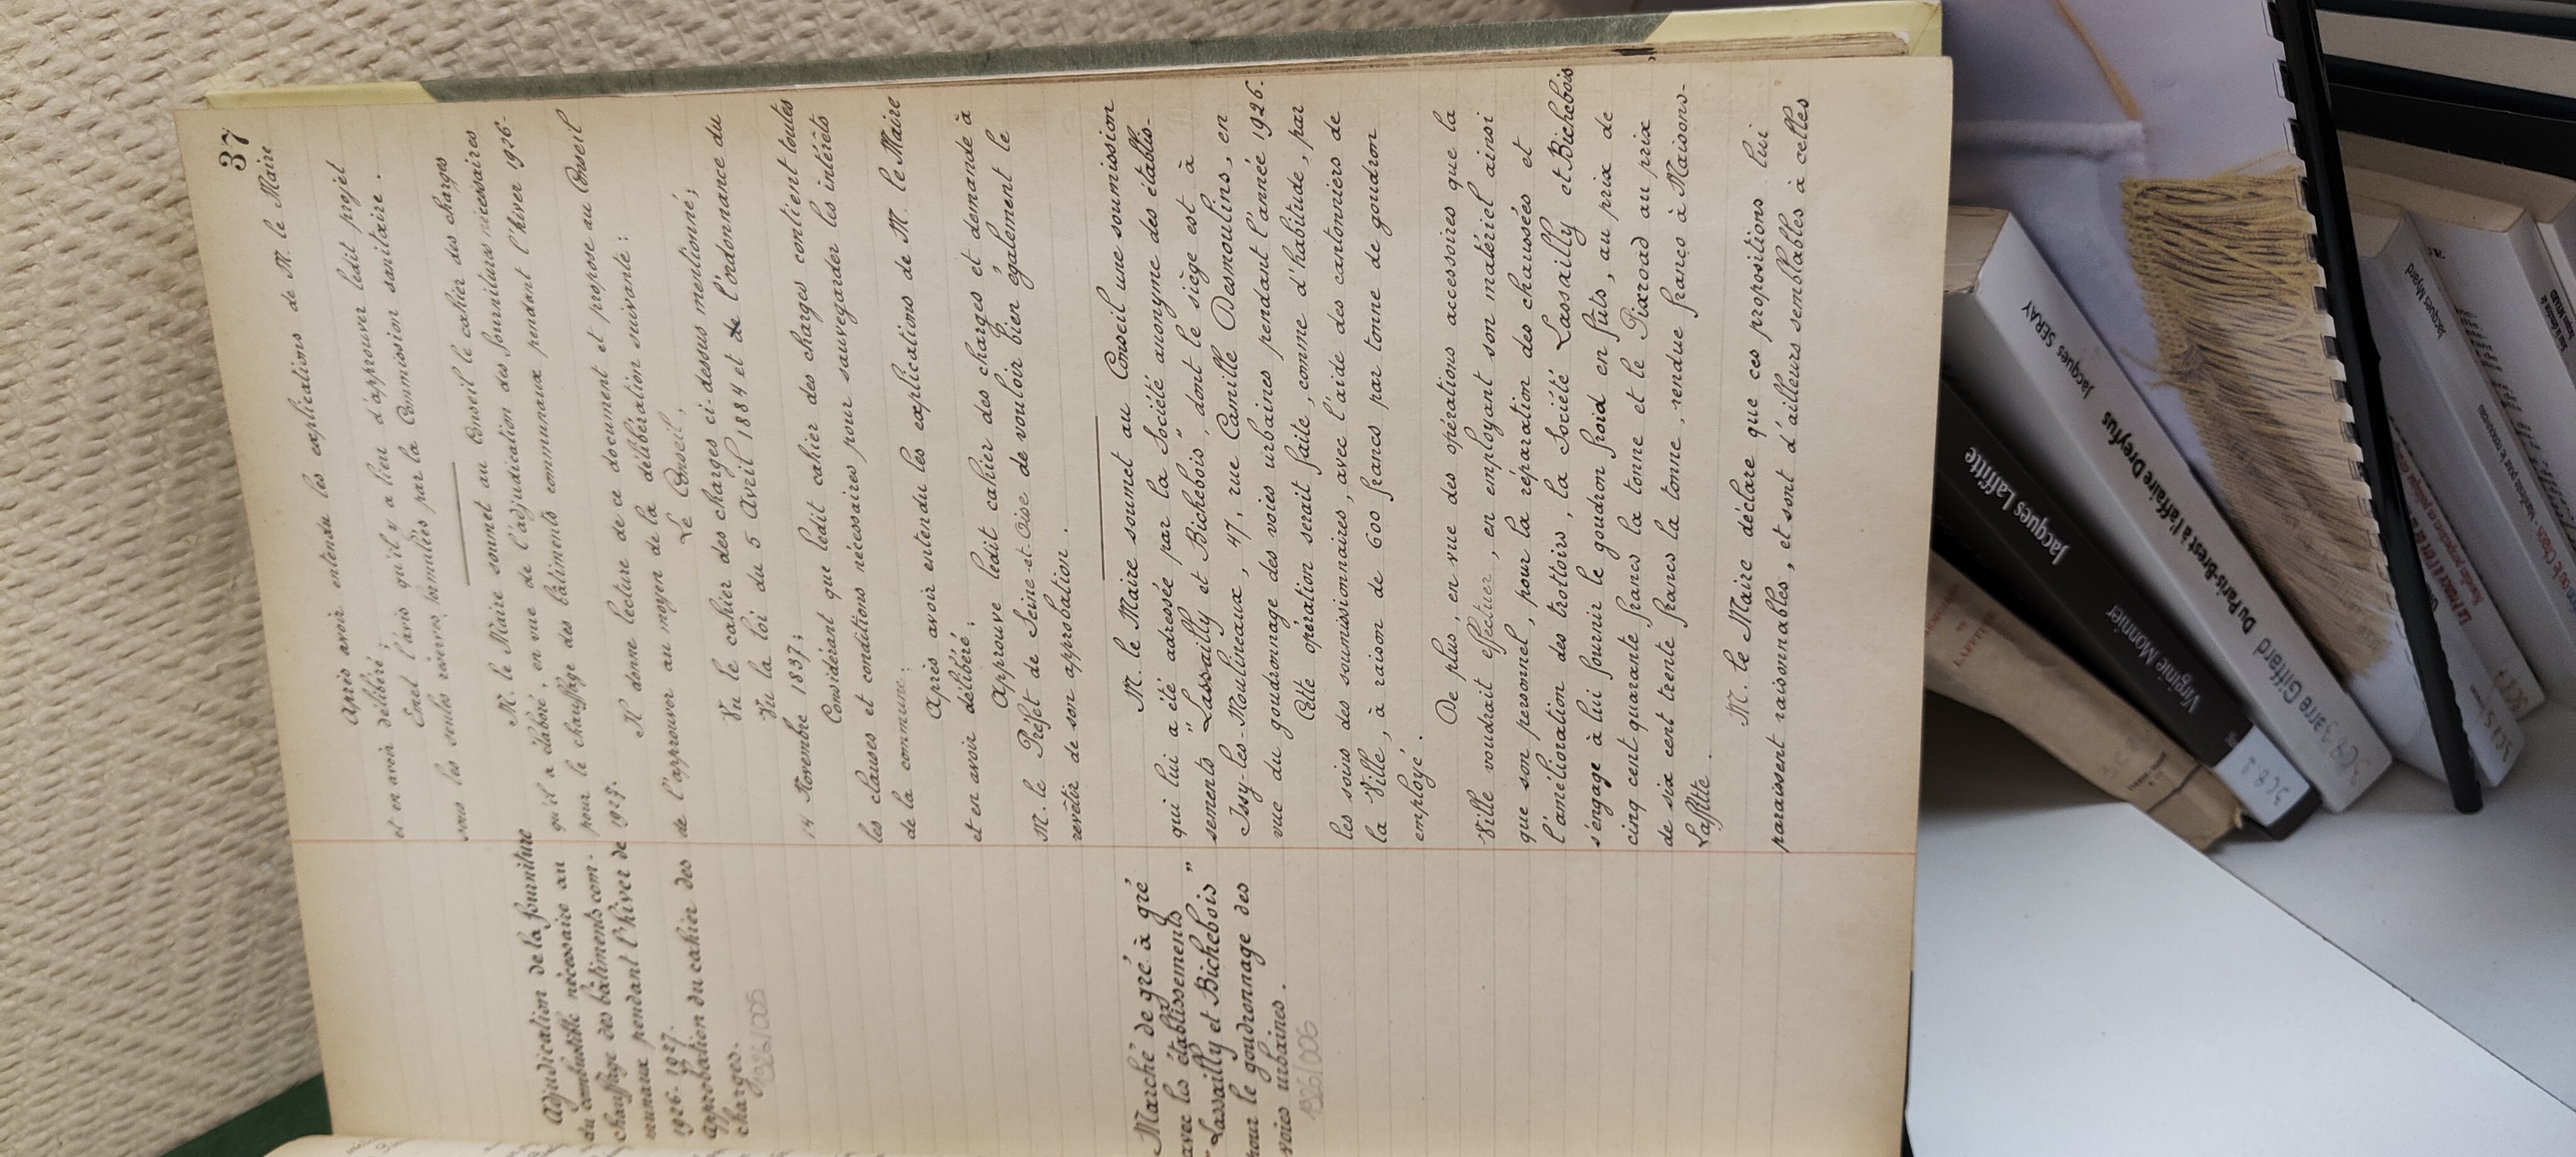 37
Après avoir entendu les explications de M. le Maire
et en avoir délibéré ;
Emet l'avis qu'il y a lieu d'approuver ledit projet
sous les seules réserves formulées par la Commission sanitaire.
Adjudication de la fourniture
du combustible nécessaire au
chauffage des bâtiments com-
munaux pendant l'hiver de
1926-1927.
Approbation du cahier des
charges.
1926/005
M. le Maire soumet au Conseil le cahier des charges
qu'il a élaboré, en vue de l'adjudication des fournitures nécessaires
pour le chauffage des bâtiments communaux pendant l'hiver 1926-
1927.
Il donne lecture de ce document et propose au Conseil
de l'approuver au moyen de la délibération suivante :
Le Conseil,
Vu le cahier des charges ci-dessus mentionné;
Vu la loi du 5 Avril 1884 et de l'ordonnance du
14 Novembre 1837;
Considérant que ledit cahier des charges contient toutes
les clauses et conditions nécessaires pour sauvegarder les intérêts
de la commune;
Après avoir entendu les explications de M. le Maire
et en avoir délibéré ;
Approuve ledit cahier des charges et demande à
M. le Préfet de Seine-et-Oise de vouloir bien également le
revêtir de son approbation.
Marché de gré à gré
avec les établissements
"Lassailly et Bichebois"
pour le goudronnage des
voies urbaines.
1926/006
M. le Maire soumet au Conseil une soumission
qui lui a été adressée par la Société anonyme des établis-
sements "Lassailly et Bichebois", dont le siège est à
Issy-les-Moulineaux, 47, rue Camille Desmoulins, en
vue du goudronnage des voies urbaines pendant l'année 1926.
Cette opération serait faite, comme d'habitude, par
les soins des soumissionnaires, avec l'aide des cantonniers de
la Ville, à raison de 600 francs par tonne de goudron
employé.
De plus, en vue des opérations accessoires que la
Ville voudrait effectuer, en employant son matériel ainsi
que son personnel, pour la réparation des chaussées et
l'amélioration des trottoirs, la Société Lassailly et Bichebois
s'engage à lui fournir le goudron froid en fûts, au prix de
cinq cent quarante francs la tonne et le Pixroad au prix
de six cent trente francs la tonne, rendue franco à Maisons-
Laffitte.
M. le Maire déclare que ces propositions lui
paraissent raisonnables, et sont d'ailleurs semblables à celles
LAFFITTE
Virginie Monnier
Jacques Laffitte
3C8.2
Pierre Giffard
Du Paris-Brest à l'affaire Dreyfus
Jacques SERAY
Jacques Myard